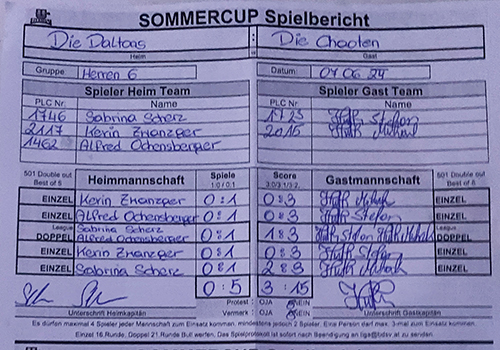 SOMMERCUP Spielbericht
Die Daltons : Die Chaoten
Heim Gast
Gruppe: Herren 6 Datum: 07.06.24
Spieler Heim Team Spieler Gast Team
PLC Nr. Name PLC Nr. Name
1746 Sabrina Scherz 1723 Stefan
2117 Kerin Zwanzger 2015
1462 Alfred Ochensberger
501 Double out Best of 5 Heimmannschaft Spiele 1:0 / 0:1 Score 3:0/3:1/3:2 Gastmannschaft 501 Double out Best of 5
EINZEL Kerin Zwanzger 0:1 0:3 EINZEL
EINZEL Alfred Ochensberger 0:1 0:3 Stefan EINZEL
League DOPPEL Sabrina Scherz Alfred Ochensberger 0:1 1:3 Stefan League DOPPEL
EINZEL Kerin Zwanzger 0:1 0:3 EINZEL
EINZEL Sabrina Scherz 0:1 2:3 EINZEL
0:5 3:15
Protest: OJA NEIN
Unterschrift Heimkapitän Vermerk: OJA NEIN Unterschrift Gastkapitän
Es dürfen maximal 4 Spieler jeder Mannschaft zum Einsatz kommen, mindestens jedoch 2 Spieler. Eine Person darf max. 3-mal zum Einsatz kommen.
Einzel 16.Runde, Doppel 21.Runde Bull werfen. Das Spielprotokoll ist sofort nach Beendigung an liga@tbdsv.at zu senden.